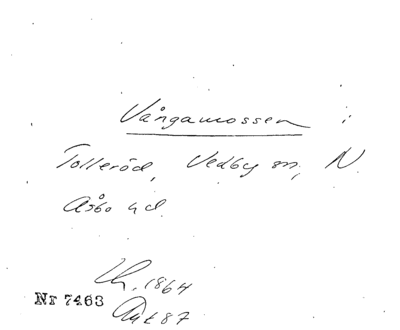 Vångamossen i
Tolleröd, Vedby sn, N.
Åsbo hd.
Uk. 1864
Nr 7463
Akt 87